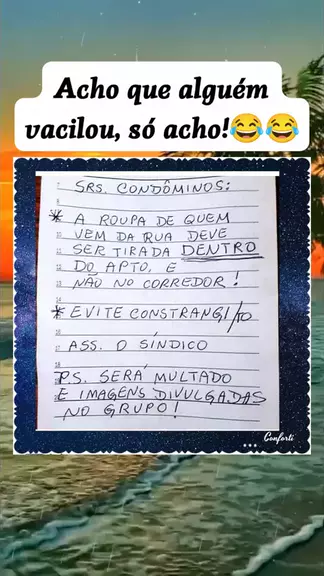 Acho que alguém
vacilou, só acho!😂😂
SRS. CONDÔMINOS:
* A ROUPA DE QUEM
VEM DA RUA DEVE
SER TIRADA DENTRO
DO APTO. E
NÃO NO CORREDOR!
* EVITE CONSTRANGI/TO
ASS. O SÍNDICO
PS. SERÁ MULTADO
E IMAGENS DIVULGADAS
NO GRUPO!
... Conforti